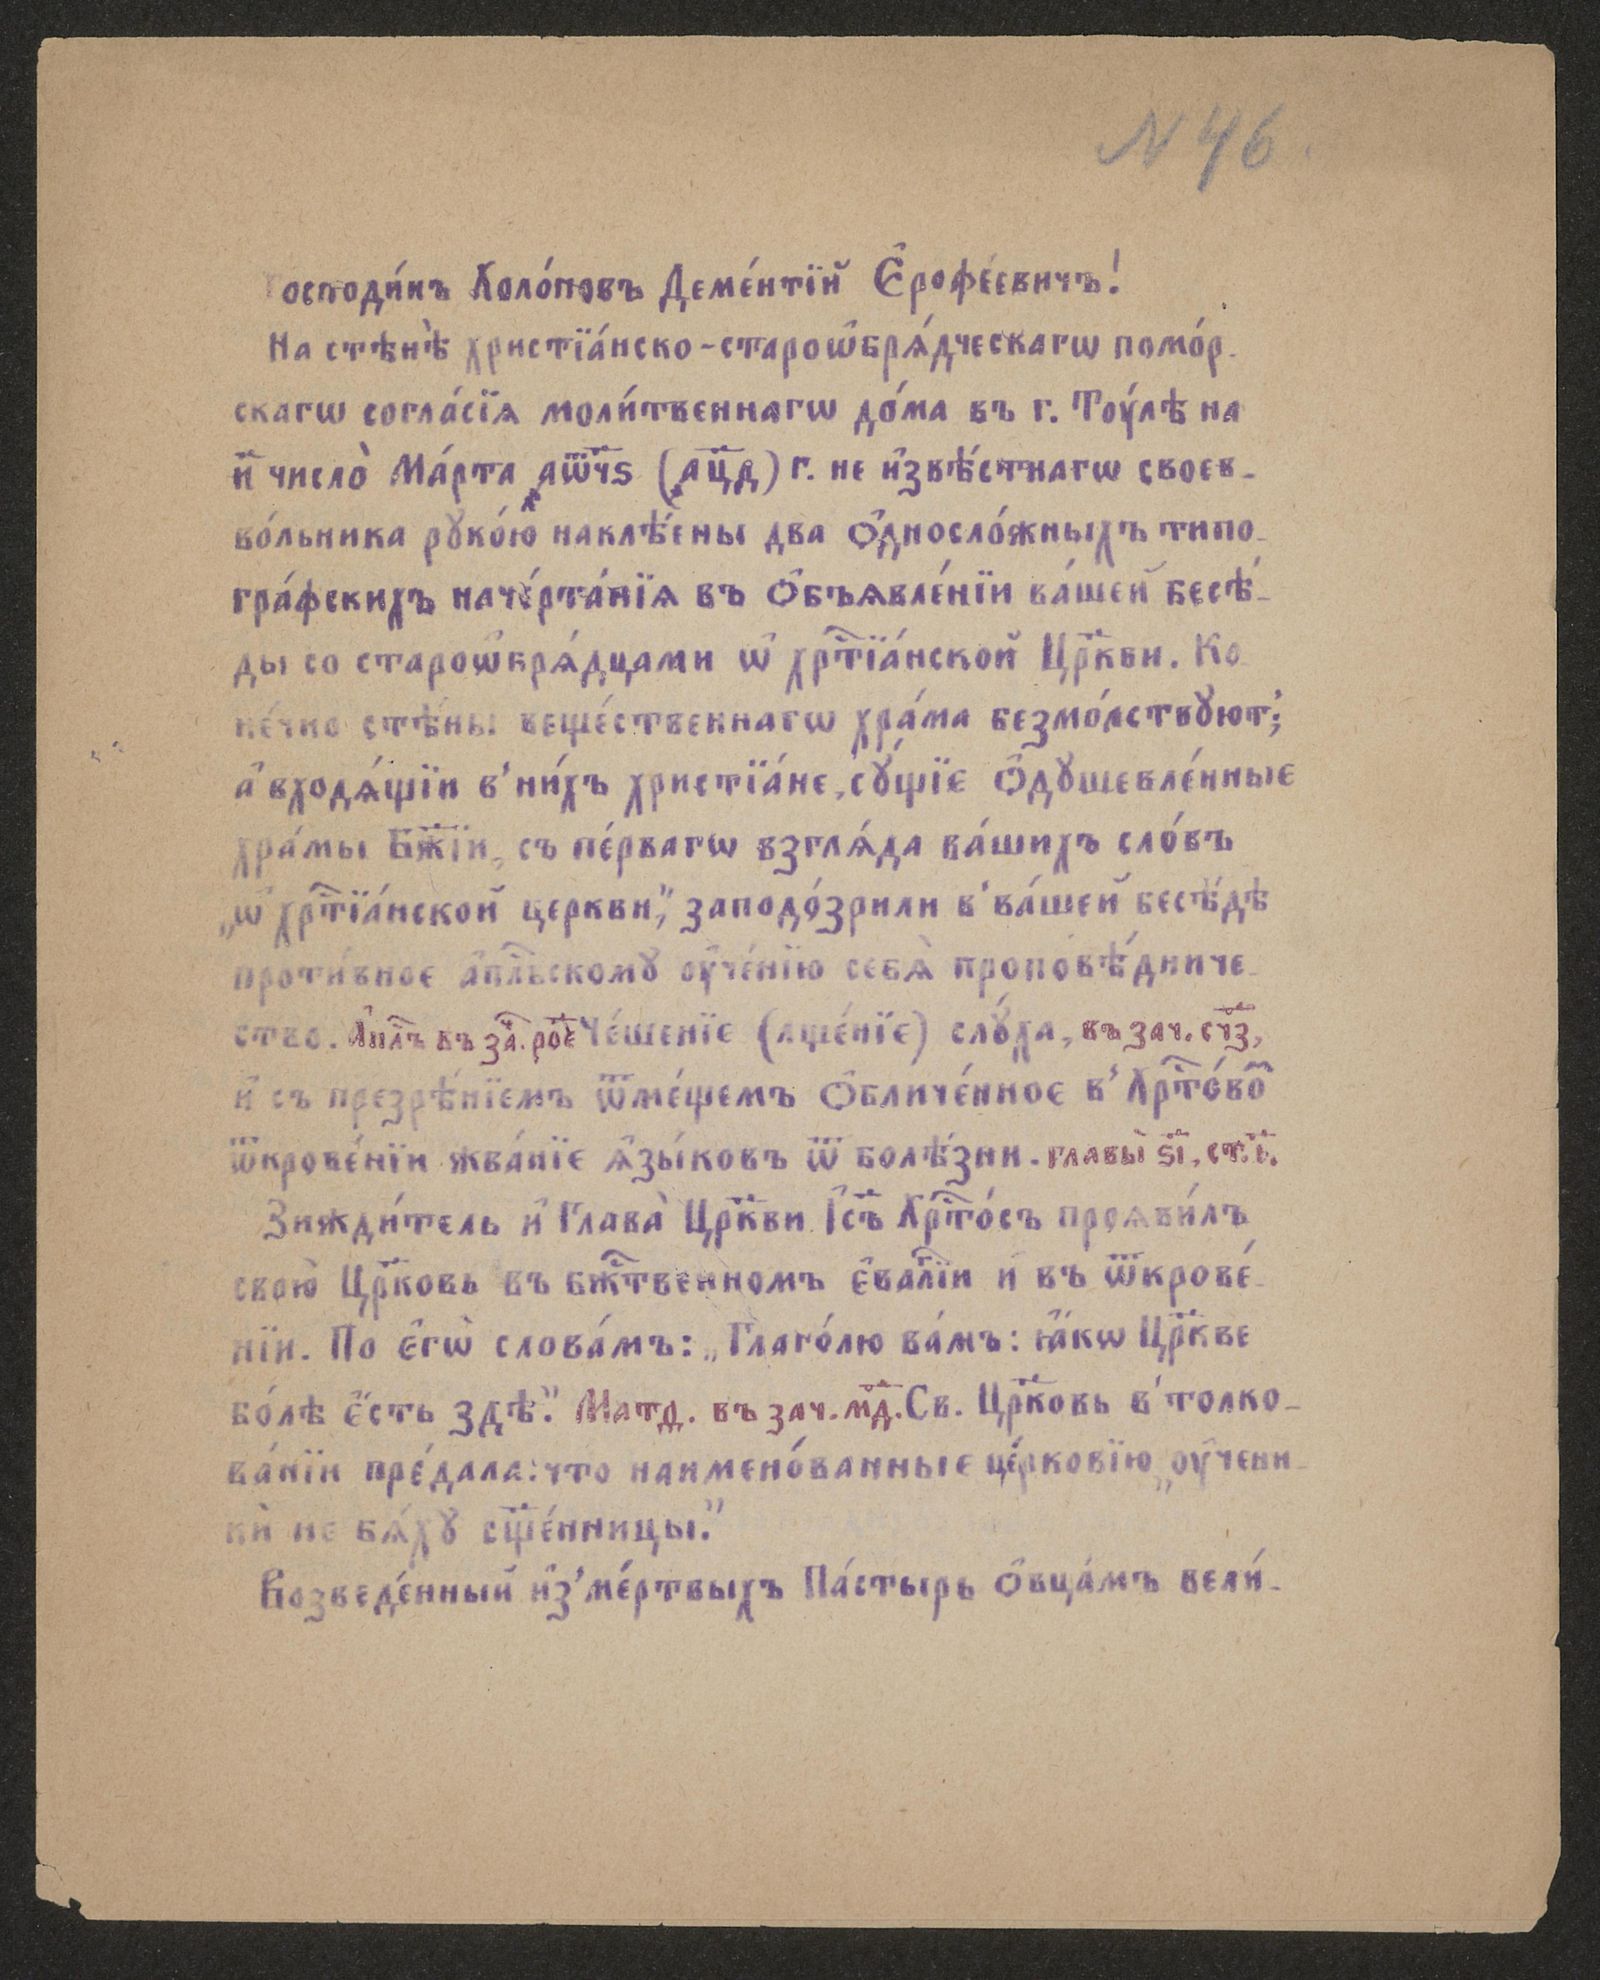 N 46.
Господи́нъ Холо́повъ Деме́нтїй Є҆рофе́евичъ!
На стѣнѣ̀ христїа́нско-староѡ҆бря́дческагѡ помо́р-
скагѡ согла́сїѧ моли́твеннагѡ до́ма въ г. Тоу́лѣ на
и҃ число̀ Ма́рта ҂аѿ҃чѕ (҂ац҃д) г. не и҆звѣ́стнагѡ своев-
во́льника рꙋко́ю наклѣ́ены два ѻ҆дносло́жныхъ типо-
гра́фскихъ наче́рта́нїѧ въ ѻ҆бъѧвле́нїи ва́шей бесѣ́-
ды со староѡ҆брѧ́дцами ѡ҆ хрⷭ҇тїа́нской Цр҃кви. Ко-
не́чно стѣ́ны веще́ственнагѡ хра́ма безмо́лствꙋют;
а҆ входѧ́щїи в' ни́хъ христїа́не, сꙋ́щїе ѻ҆дꙋшевле́нные
хра́мы Бж҃їи, съ пе́рвагѡ взглѧ́да ва́шихъ сло́въ
„ѡ҆ хрⷭ҇тїа́нской церкви,” заподо́зрили в' ва́шей бесѣ́дѣ
проти́вное а҆пⷭ҇льскомꙋ оу҆че́нїю себѧ̀ проповѣ́дниче-
ство. А҆пⷭ҇лъ въ за҃. ро҃е Че́шенїе (лще́нїе) слꙋ́ха, въ зач. сч҃з,
и҆ съ презрѣ́нїемъ ѿме́щемъ ѻ҆бличе́нное в' Хрⷭ҇то́во
ѿкрове́нїи жва́нїе ѧ҆зы́ковъ ѿ болѣ́зни. главы̀ ѕ҃і, ст. і҃.
Зижди́тель и҆ Глава̀ Цр҃кви І҆с҃ъ Хрⷭ҇то́съ проѧви́лъ
свою̀ Цр҃ковь въ бжⷭ҇твенномъ є҆ваⷢ҇лїи и҆ въ ѿкрове́-
нїи. По є҆гѡ̀ слова́мъ: „Глаго́лю ва́мъ: ꙗ҆́кѡ Цр҃кве
бо́лѣ є҆́сть здѣ̀.” Матѳ. въ зач. м҃д. Св. Цр҃ковь в' толко-
ва́нїи пре́дала: что наимено́ванные це́рковїю „оу҆чени-
кѝ не бѧ́хꙋ сщ҃е́нницы.”
Возведе́нный и҆з' ме́ртвыхъ Па́стырь ѻ҆вца́мъ вели́-